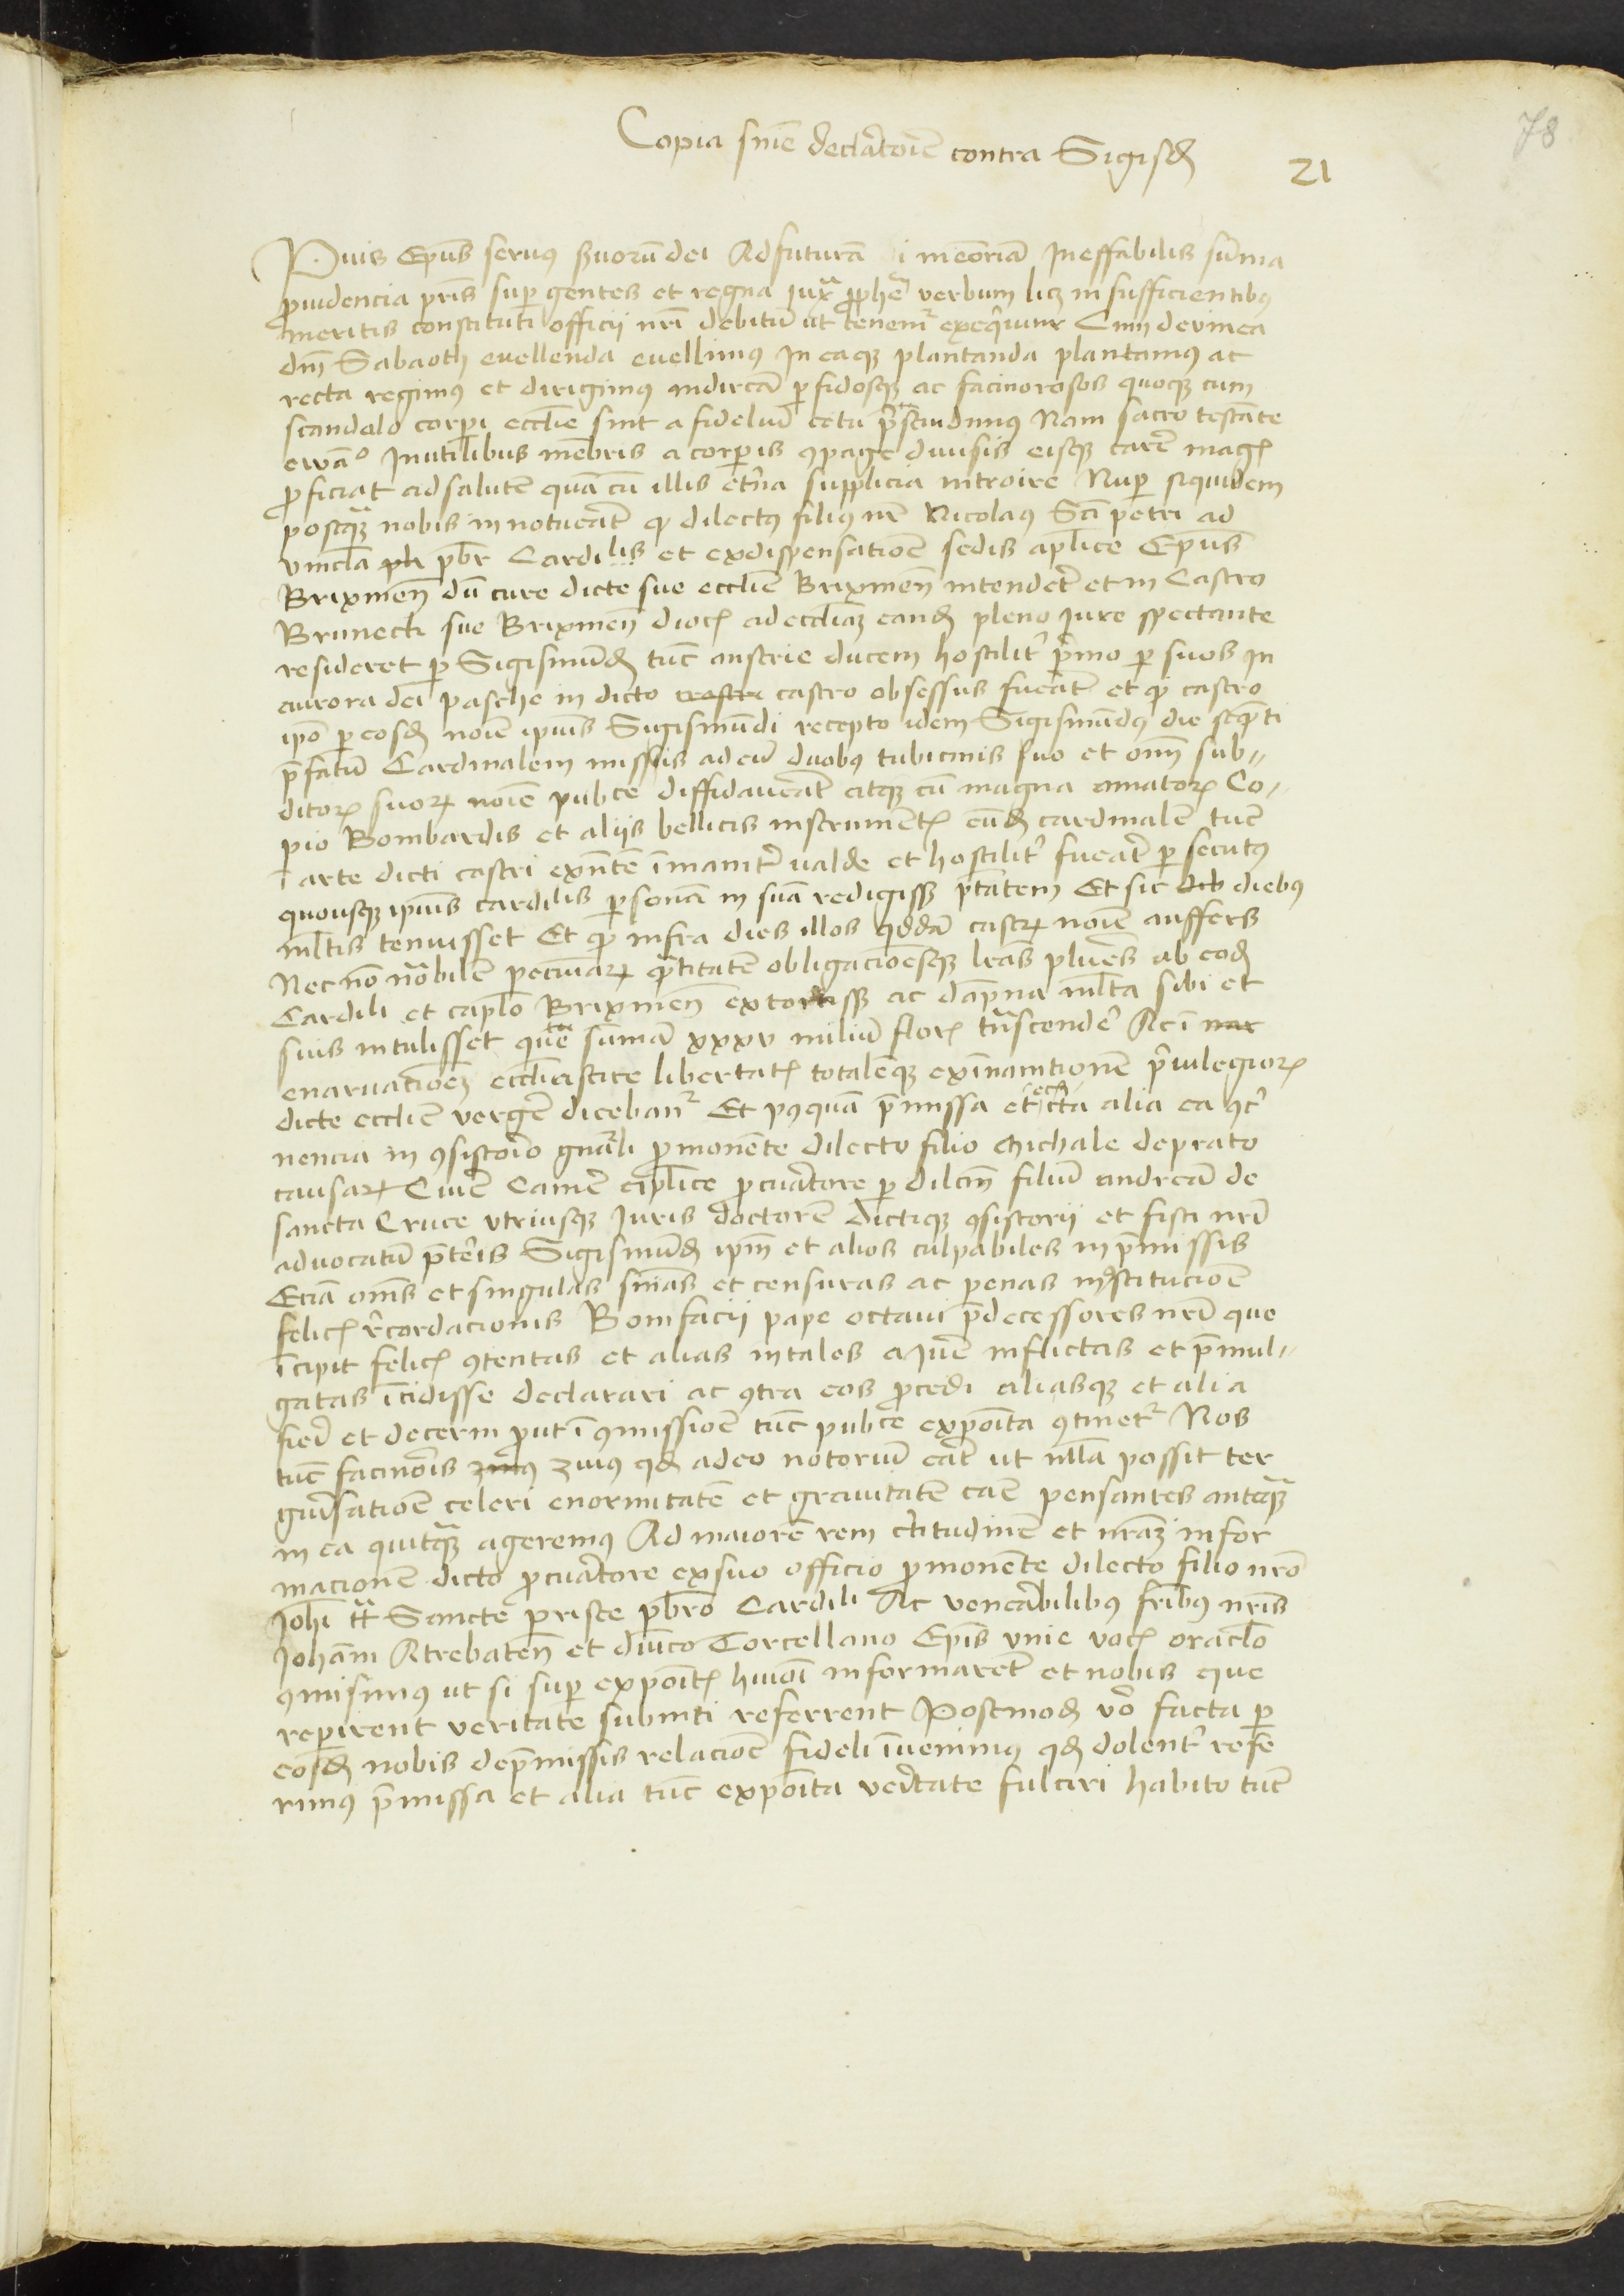 78
Copia snīe declātorie contra Sigisd
21
Pius Epūs servus svorū dei Ad futurā i memoriā Ineffabilis sūma
prouidencia pris super gentes et regna juxa prophe verbum licz insufficientibus
meritis constituti officii nri debitū ut tenemr exequimr Cum de vinea
dn̄i Sabaoth euellenda euellimus In eaqz plantanda plantamus ac
recta regimus et dirigimus perfidosqz ac facinorosos quoqz cum
scandalo corpi ecclie sint a fideliū cetu prescindimus Nam sacro testāte
ewāo Inutilibus mēbris a corporis 9page diuisis eisqz carē magis
proficiat ad salutē quā cū illis etna supplicia introire Nuper siquidem
postqz nobis innotueāt qd dilectus filius nr Nicolaus Scī petri ad
vincla pbr Cardilis et ex dispensatiōe sedis aplice Epus
Brixinen dū cure dicte sue ecclie Brixinen intenderet et in Castro
Bruneck sue Brixinen dioc ad eccliaz eand pleno jure spectante
resideret per Sigismūd tūc austrie ducem hostilitr primo per suos in
aurora dei pasche in dicto castro obsessus fueāt et qd castro
ipo per eosd noīe ipius Sigismūdi recepto idem Sigismūdus die sequēti
prefatū Cardinalem missis ad eū duobus tubicinis suo et oīm sub-
ditorz suorz noīe publce diffidaueāt atqz cū magna armatorz Co-
pia Bombardis et aliis bellicis instrumētis eūd cardinalē tūc
ī arce dicti castri exntē īmanitr valde et hostilitr fueāt persecutus
quousqz ipius cardilis personā in suā redigissz ptātem Et sic diebus
mltis tenuisset Et qd infra dies illos qddā castrz noīe auffers
Nec nō nōbilē pecuniarz quātitatē obligacionesqz lrās plures ab eod
Cardili et caplo Brixinen extorsissz ac dāpna mlta sibi et
suis intulisset que sūmā xxxv miliū florz trāscendē Ac ī
enaruationez ecclīastice libertatis totalēqz exinanitionē priuilegiorz
dicte ecclie vergē dicebanr Et posquā premissa et certa alia ea 9cr
nencia in 9sistorio gnāli promonēte dilecto filio Michale de prato
causarz Ciuiē Camē aplice procuratore per dilcm filiū andreā de
sancta Cruce vtriusqz Juris doctorē dictiqz 9sistorii et fisci nri
advocatū preteris Sigismūd ipm et alios culpabiles in premissis
Eciā omes et singulas sniās et censuras ac penas in 9stitucione
felicis recordacionis Bonifacii pape octaui predecessores nri que
īcipit felicis 9tentas et alias in tales a jure inflictas et promul-
gatas īcidisse declarari ac 9tra eos procedi aliasqz et alia
fieri et decerni prout ī 9missiōe tūc publce exposita 9tinetr Nos
tūc facinoris qd adeo notoriū eāt ut nlla possit ter
giuersatiōe celeri enormitatē et grauitatē eciā pensantes anteqz
in ea quicqz ageremus Ad maiorē rem certitudinē et nrāz infor
macionē dicto procuratore ex suo officio promonēte dilecto filio nro
Johi tt Sancte prisce pbro Cardili Ac venerabilibus fribus nris
Johāni Atrebaten et dnico Torcellano Epis viue vocis oraclo
9misimus ut si super expoitis huioi informaret et nobis que
reperirent veritate subniti referrent Postmod vo facta per
eosd nobis de premissis relacione fideli īuenimus qd dolentr refe
rimus premissa et alia tūc exposita veritate fulciri habito tūc